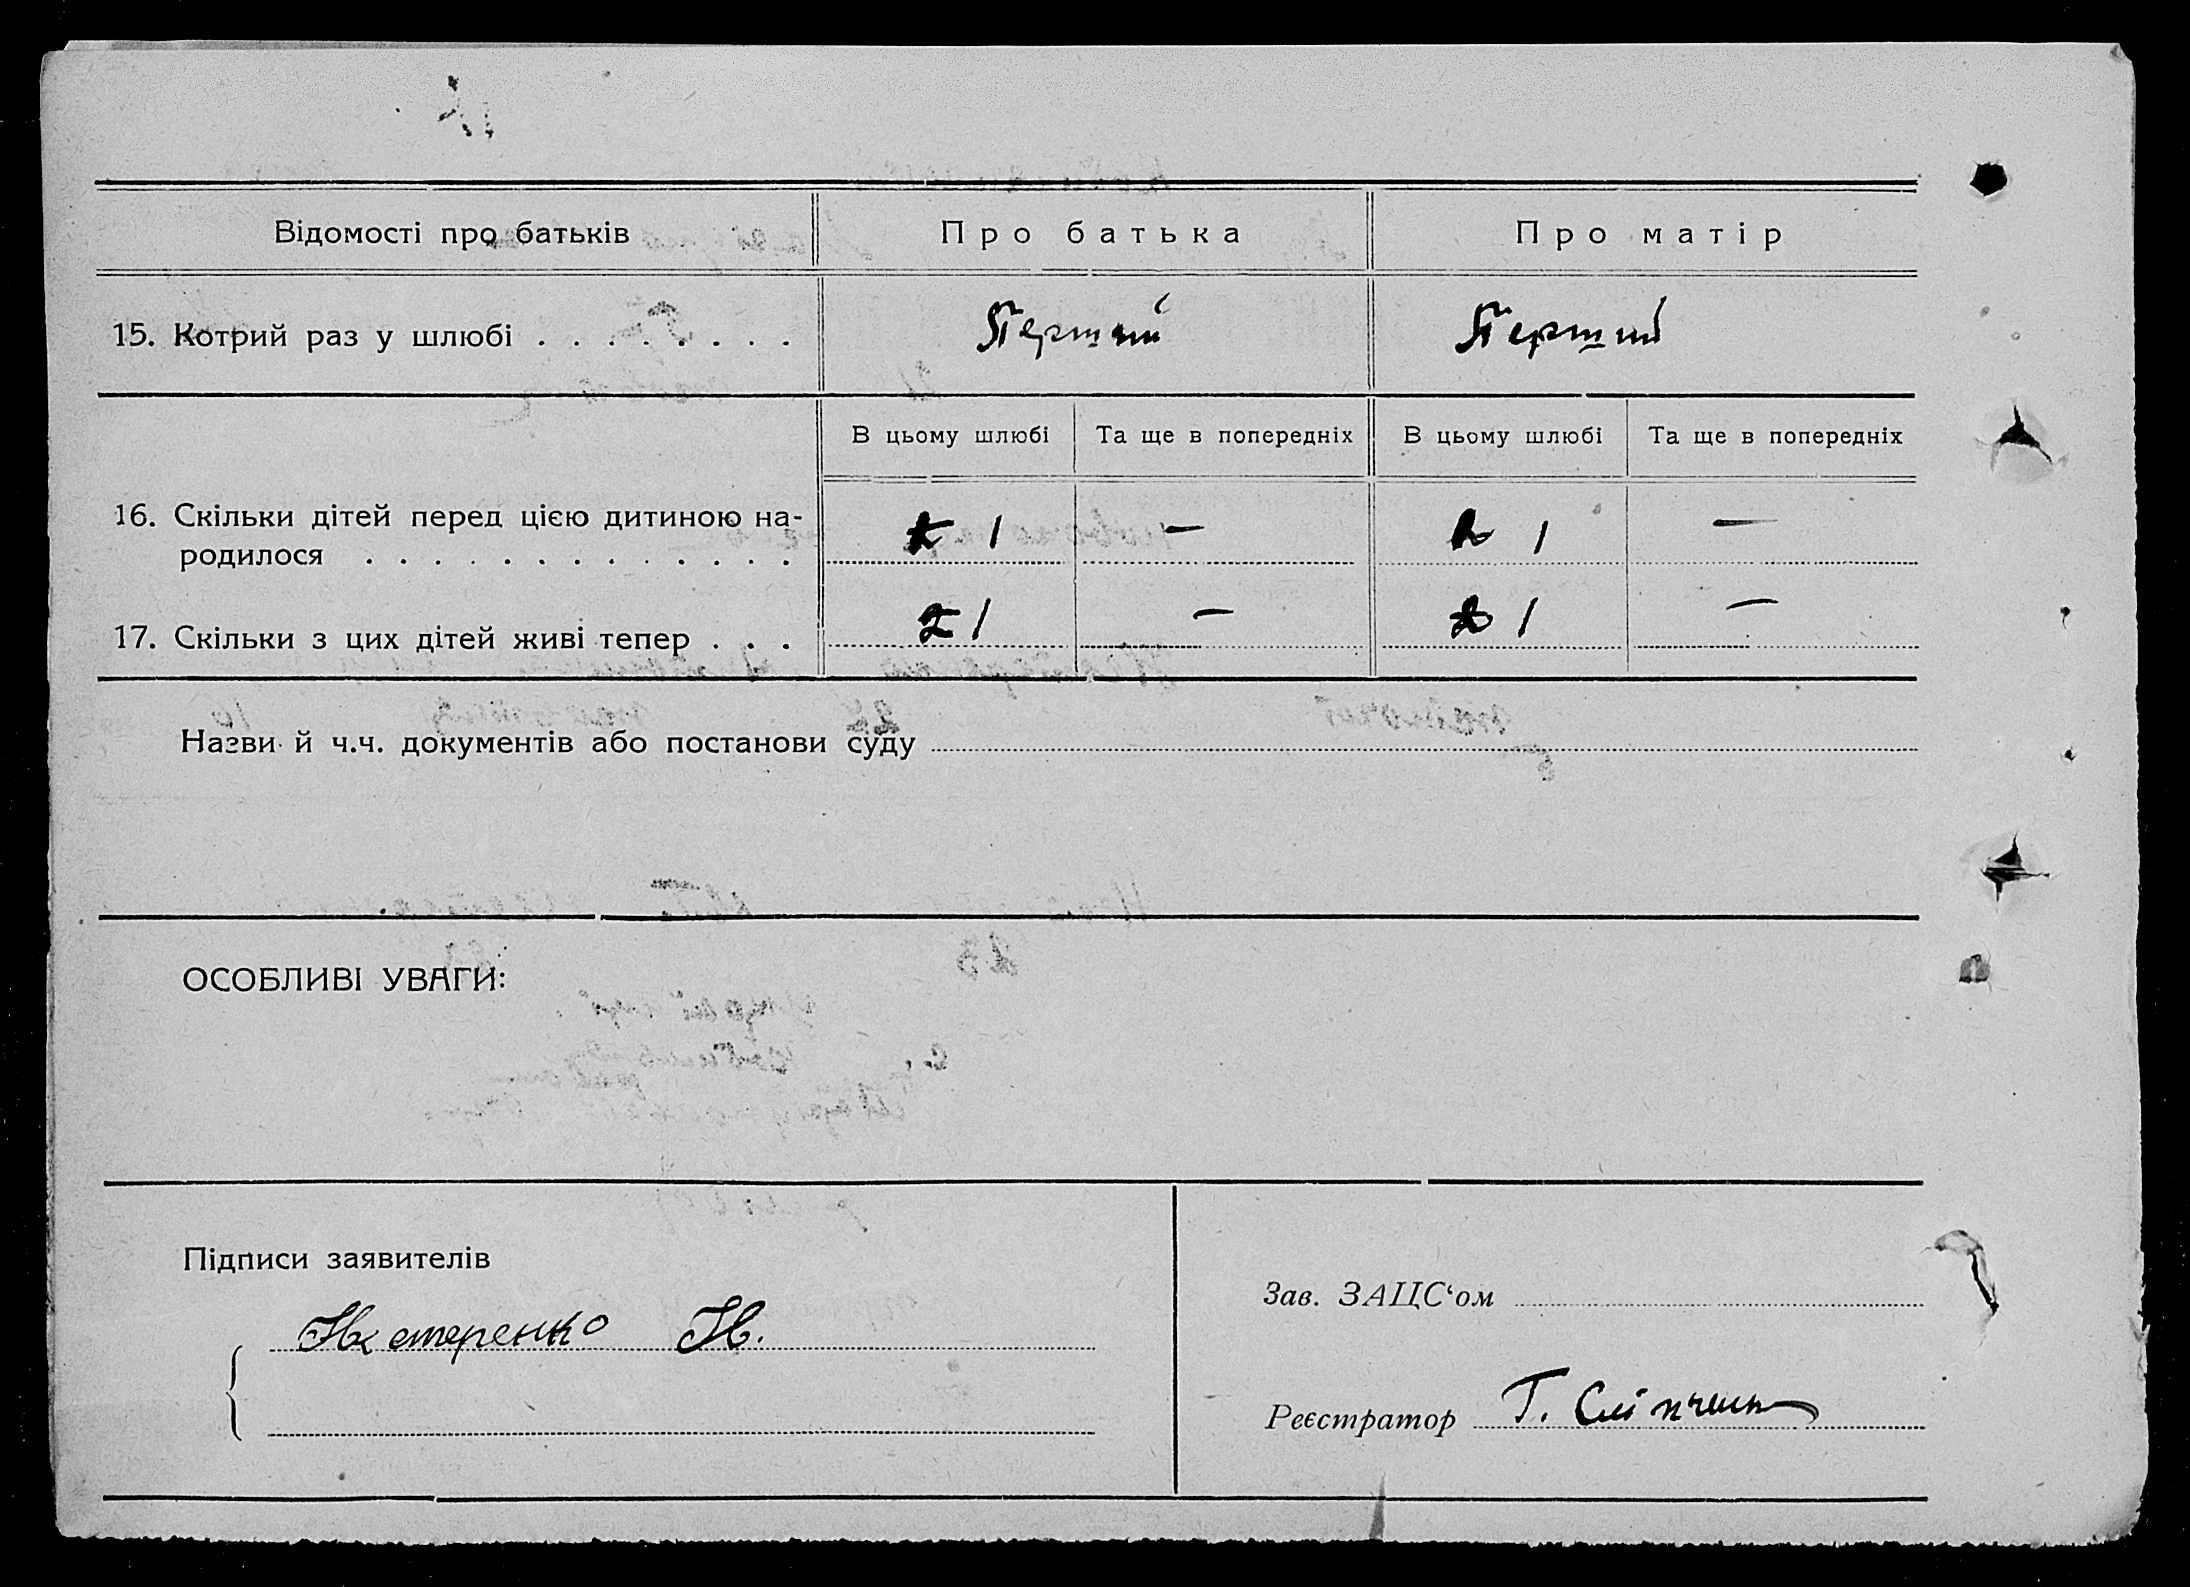 Відомості про батьків Про батька Про матір
15. Котрий раз у шлюбі . . . . . . . . Перший Перший
В цьому шлюбі Та ще в попередніх В цьому шлюбі Та ще в попередніх
16. Скільки дітей перед цією дитиною на-
родилося . . . . . . . . . . . . . 1 — 1 —
17. Скільки з цих дітей живі тепер . . . 1 — 1 —
Назви й ч.ч. документів або постанови суду
ОСОБЛИВІ УВАГИ:
Підписи заявителів
Нестеренко Н.
Зав. ЗАЦС‘ом
Реєстратор Г.